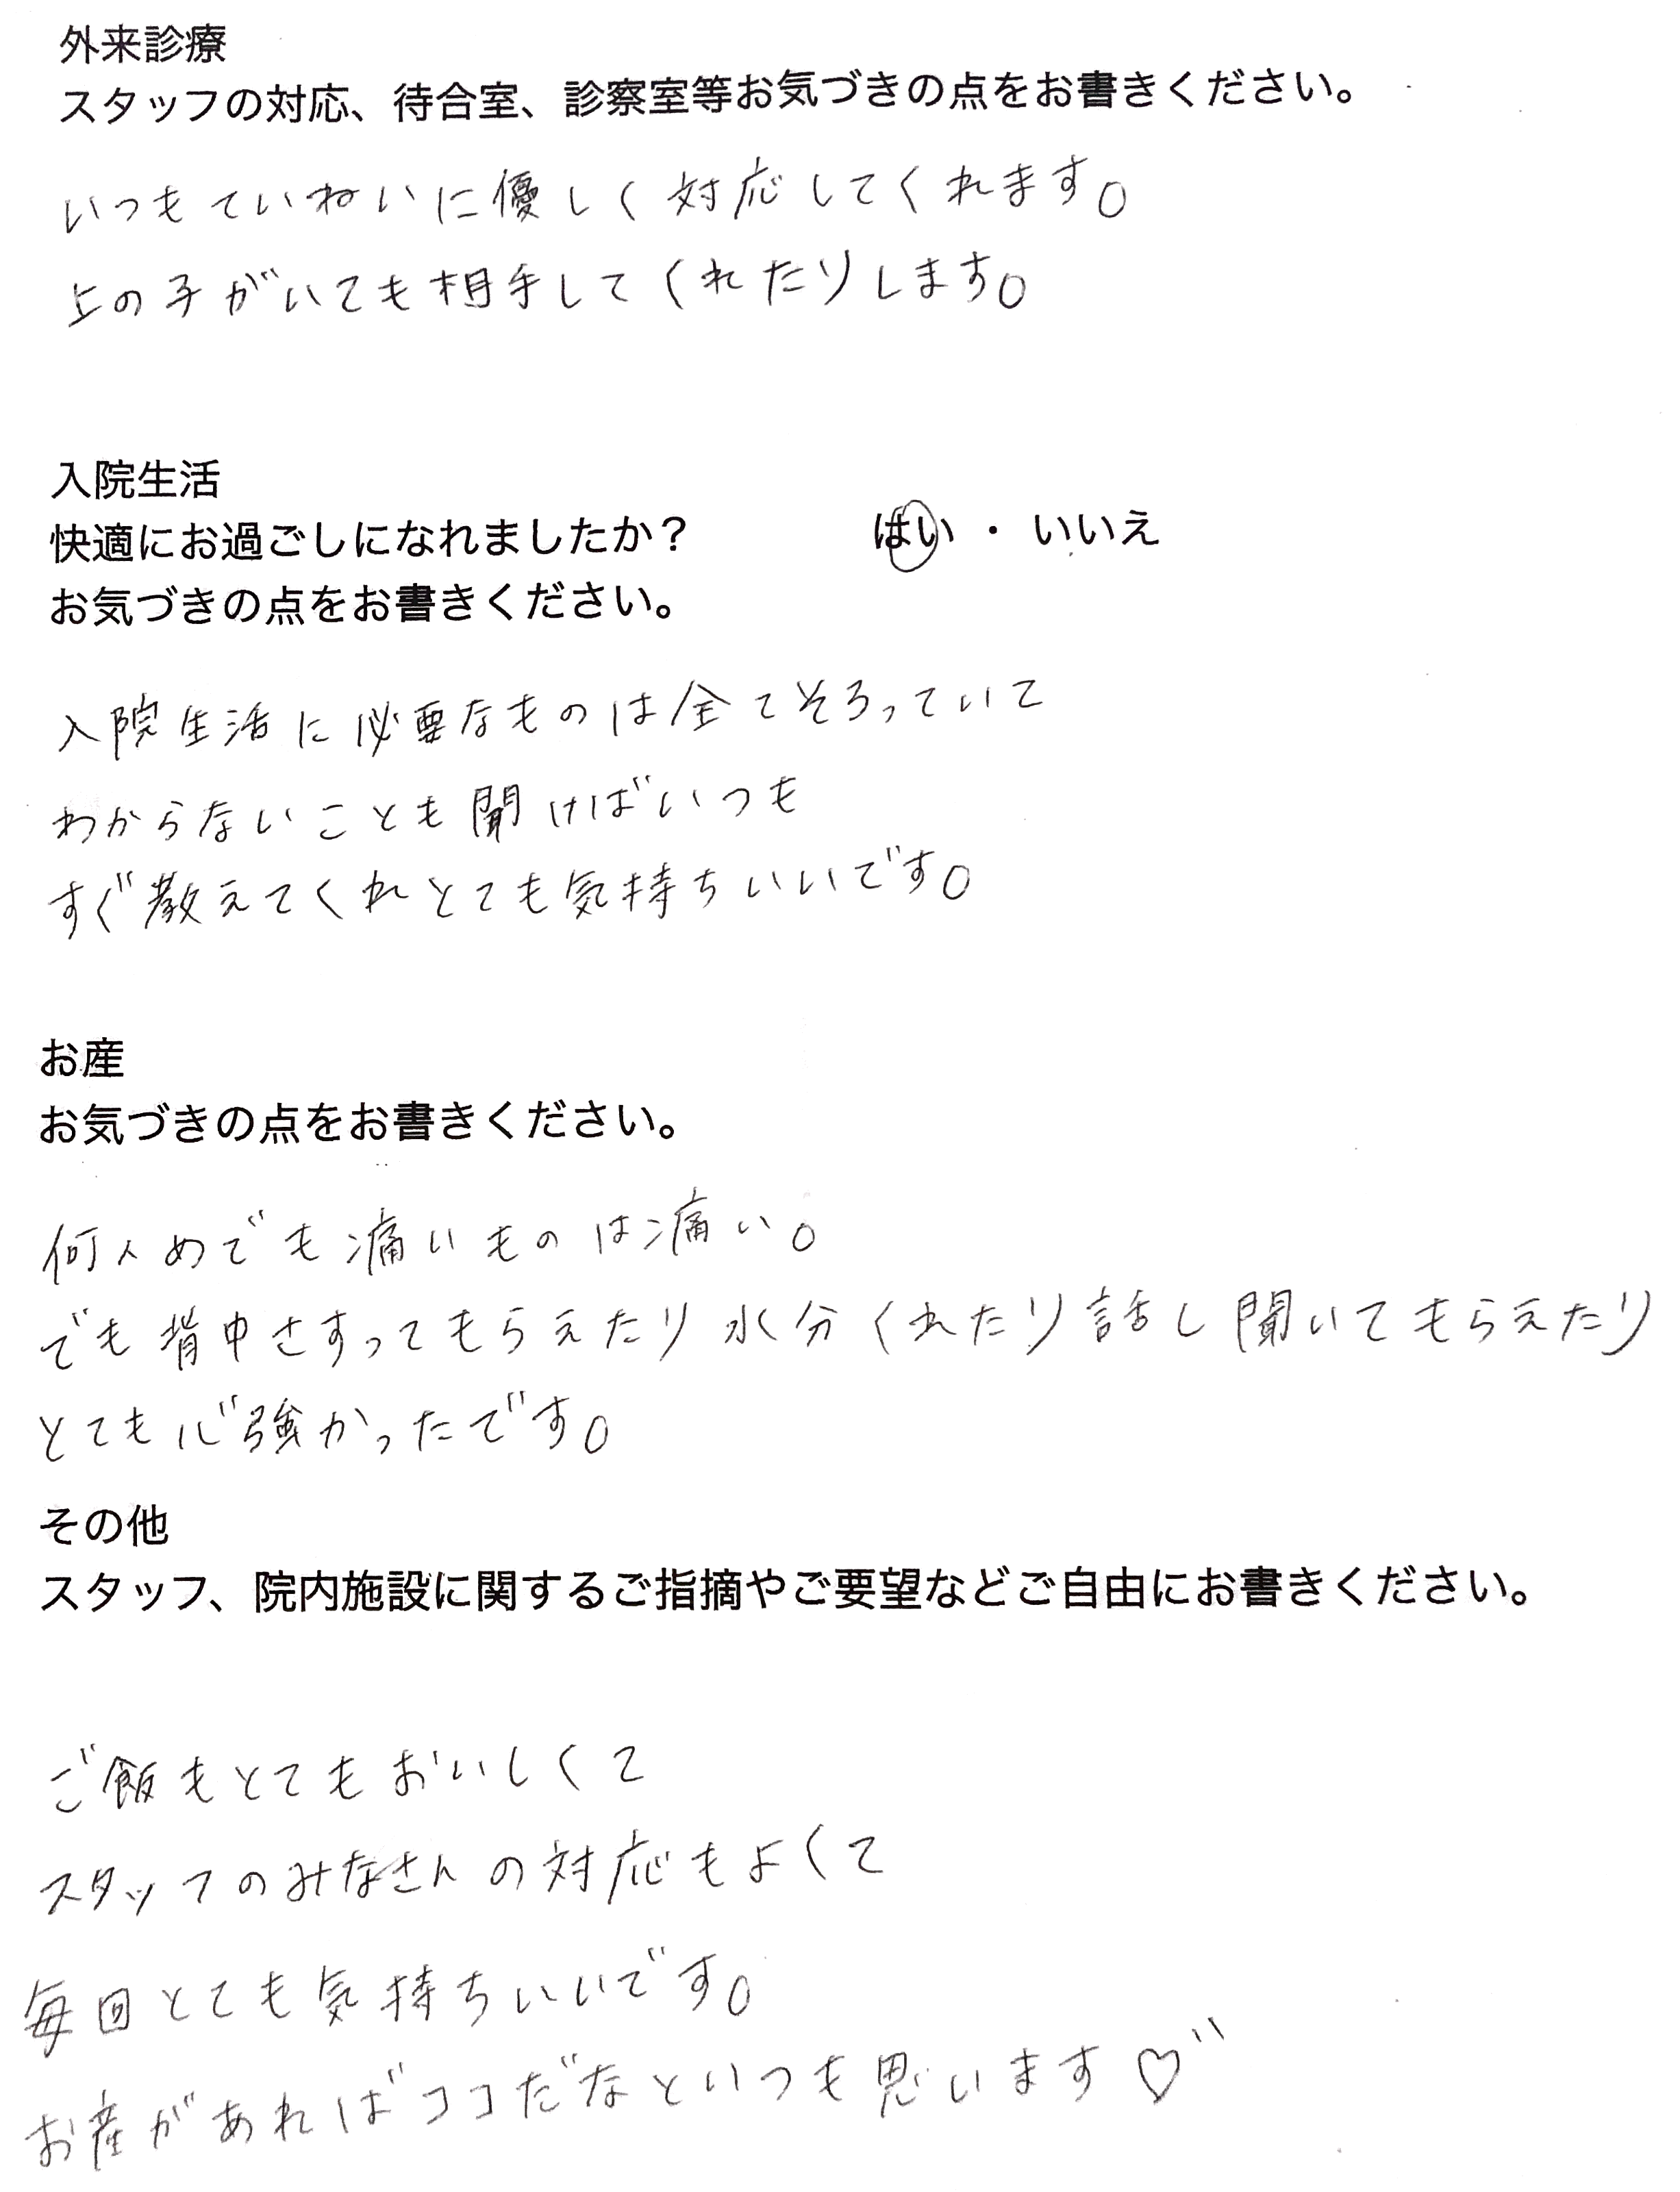 外来診療
スタッフの対応、待合室、診察室等お気づきの点をお書きください。
いつもていねいに優しく対応してくれます。
上の子がいても相手してくれたりします。
入院生活
快適にお過ごしになれましたか？　はい ・ いいえ
お気づきの点をお書きください。
入院生活に必要なものは全てそろっていて
わからないことも聞けばいつも
すぐ教えてくれとても気持ちいいです。
お産
お気づきの点をお書きください。
何人めでも痛いものは痛い。
でも背中さすってもらえたり水分くれたり話し聞いてもらえたり
とても心強かったです。
その他
スタッフ、院内施設に関するご指摘やご要望などご自由にお書きください。
ご飯もとてもおいしくて
スタッフのみなさんの対応もよくて
毎回とても気持ちいいです。
お産があればココだなといつも思います♡